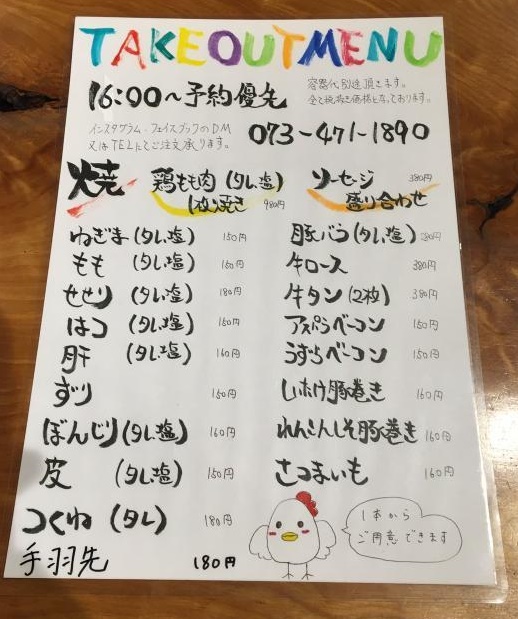 TAKEOUTMENU
16:00〜予約優先
容器代別途頂きます。
全て税抜き価格となっております。
インスタグラム・フェイスブックのDM
又はTELにてご注文承ります。
073-471-1890
焼
鶏もも肉(タレ・塩)
1枚焼き 980円
ソーセージ 380円
盛り合わせ
ねぎま(タレ・塩) 150円
もも(タレ・塩) 150円
せせり(タレ・塩) 180円
はつ(タレ・塩) 150円
肝(タレ・塩) 160円
ずり 150円
ぼんじり(タレ・塩) 160円
皮(タレ・塩) 150円
つくね(タレ) 180円
手羽先 180円
豚バラ(タレ・塩) 180円
牛ロース 380円
牛タン(2枚) 380円
アスパラベーコン 150円
うずらベーコン 150円
しいたけ豚巻き 160円
れんこんしそ豚巻き 160円
さつまいも 160円
1本から
ご用意できます